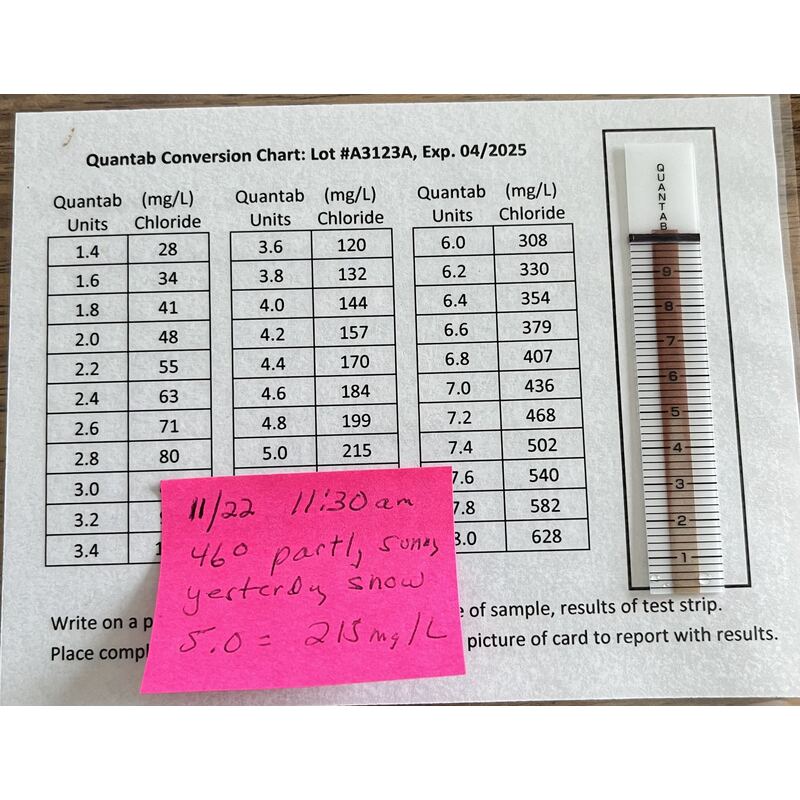 Quantab Conversion Chart: Lot #A3123A, Exp. 04/2025
Quantab Units (mg/L) Chloride
1.4 28
1.6 34
1.8 41
2.0 48
2.2 55
2.4 63
2.6 71
2.8 80
3.0
3.2
3.4
Quantab Units (mg/L) Chloride
3.6 120
3.8 132
4.0 144
4.2 157
4.4 170
4.6 184
4.8 199
5.0 215
Quantab Units (mg/L) Chloride
6.0 308
6.2 330
6.4 354
6.6 379
6.8 407
7.0 436
7.2 468
7.4 502
7.6 540
7.8 582
8.0 628
QUANTAB
9
8
7
6
5
4
3
2
1
11/22 11:30 am
46° partly sunny
yesterday snow
5.0 = 215 mg/L
Write on a of sample, results of test strip.
Place picture of card to report with results.